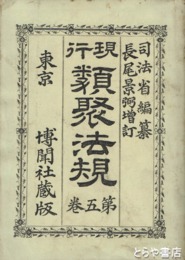 司法省編纂
長尾景弼増訂
現行
類聚法規
第五巻
東京
博聞社蔵版
とらや書店